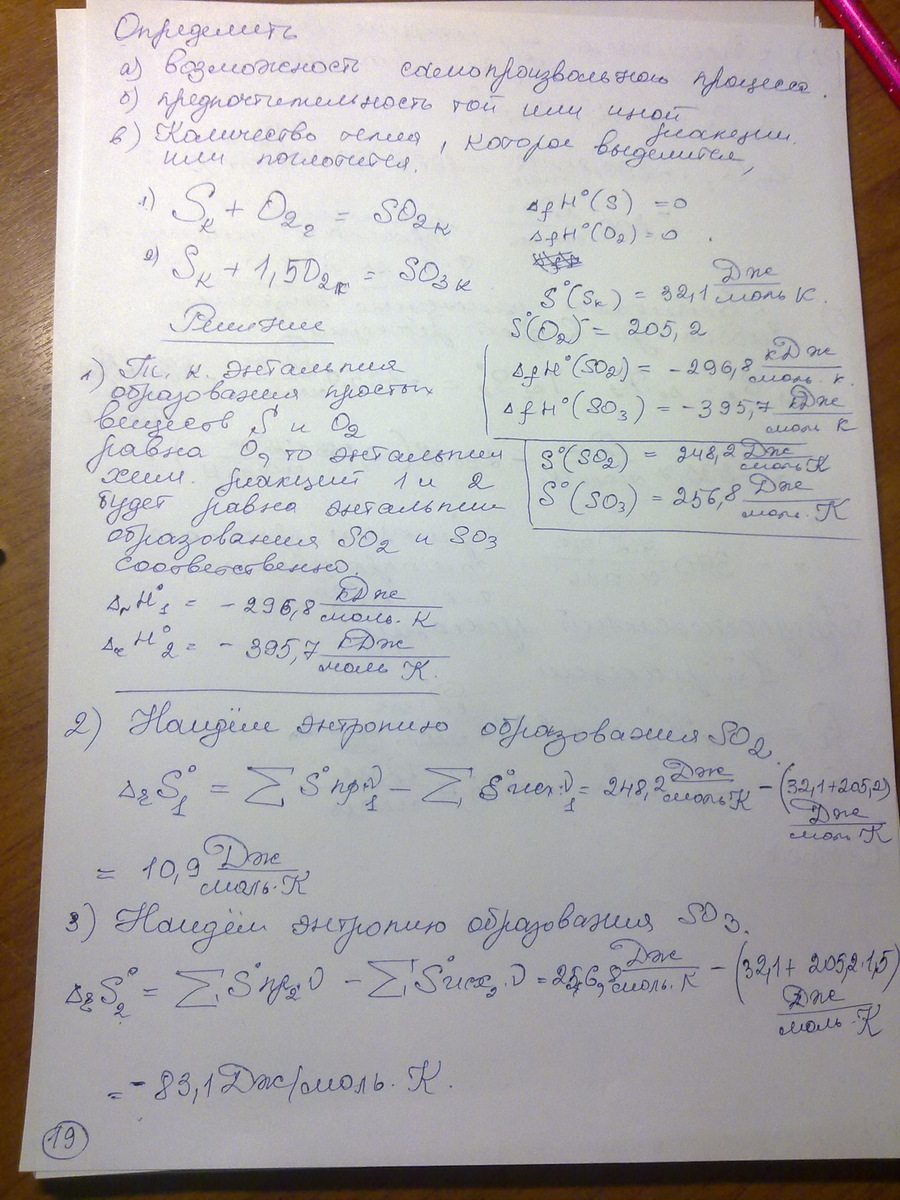 Определить
а) возможность самопроизвольного процесса.
б) предпочтительность той или иной реакции.
в) Количество тепла, которое выделится,
или поглотится.
1) Sк + O2г = SO2к
ΔfH°(S) = 0
ΔfH°(O2) = 0
2) Sк + 1,5O2к = SO3к
S°(Sк) = 32,1 Дж/моль К.
Решение
S°(O2) = 205,2
ΔfH°(SO2) = -296,8 кДж/моль. К.
ΔfH°(SO3) = -395,7 кДж/моль К
S°(SO2) = 248,2 Дж/моль К
S°(SO3) = 256,8 Дж/моль. К
1) Т. к. энтальпия
образования простых
веществ S и O2
равна 0, то энтальпии
хим. реакций 1 и 2
будет равна энтальпии
образования SO2 и SO3
соответственно.
ΔrH°1 = -296,8 кДж/моль. К
ΔrH°2 = -395,7 кДж/моль К
2) Найдём энтропию образования SO2.
ΔrS°1 = ∑ S°прд1 - ∑ S°исх.1 = 248,2 Дж/моль К - (32,1+205,2) Дж/моль К
= 10,9 Дж/моль. К
3) Найдём энтропию образования SO3.
ΔrS°2 = ∑ S°пр2 - ∑ S°исх2 = 256,8 Дж/моль. К - (32,1 + 205,2·1,5) Дж/моль. К
= -83,1 Дж/моль. К.
19